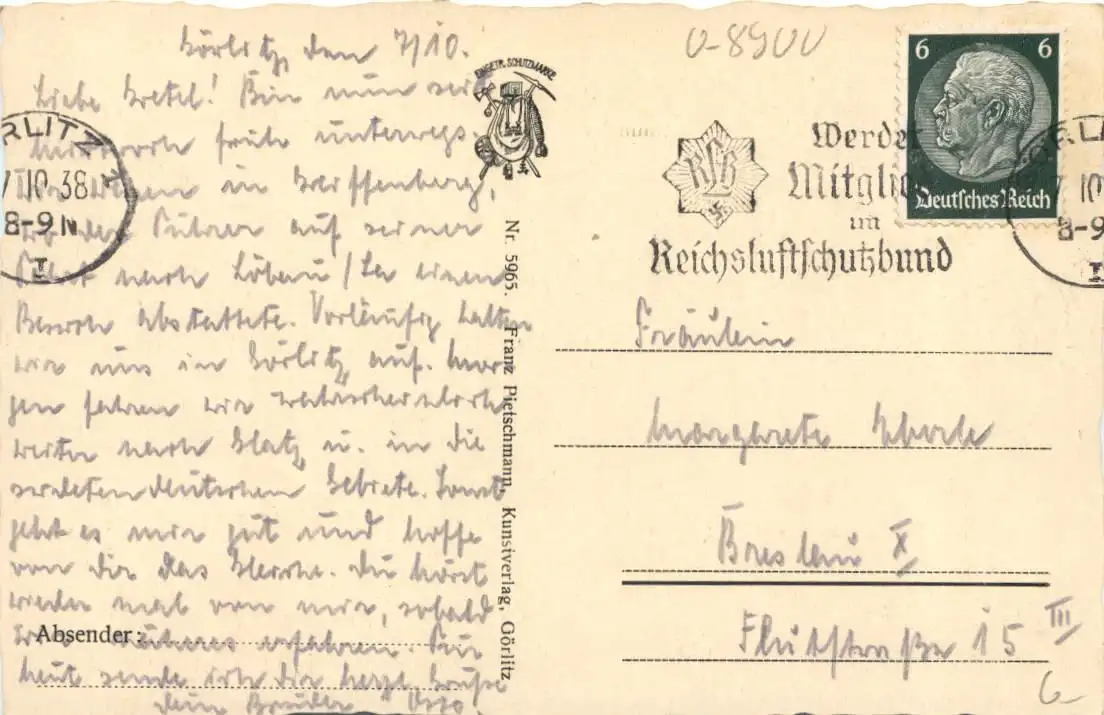 Görlitz, den 7/10.
Liebe Gretel! Bin nun seit
früh unterwegs.
in Greiffenberg,
wo der Führer auf seiner
Fahrt nach Löbau / Sa einen
Besuch abstattete. Vorläufig halten
wir uns in Görlitz auf. Mor-
gen fahren wir wahrscheinlich
weiter nach Glatz u. in die
sudetendeutschen Gebiete. Sonst
geht es mir gut und hoffe
von dir das Gleiche. Du hörst
wieder mal von mir, sobald
wir näheres erfahren. Für
heut sende ich Dir herzl. Grüße
Dein Bruder Otto.
Absender:
GÖRLITZ 1
7 10 38
8-9 N
I
EINGETR. SCHUTZMARKE
Nr. 5965. Franz Pietschmann, Kunstverlag, Görlitz
0-8900
RLB
Werde
Mitglied
im
Reichsluftschutzbund
6 6
Deutsches Reich
7 10
8-9
I
Fräulein
Margarete
Breslau X
Flutstraße 15 III
6-